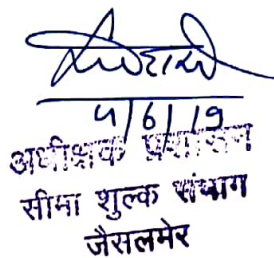 4/6/19
अधीक्षक प्रशासन
सीमा शुल्क संभाग
जैसलमेर